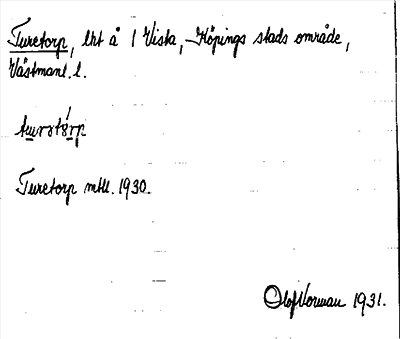 Turetorp, lht å 1 Vista, Köpings stads område,
Västmanl. l.
turətórp
Turetorp mtl. 1930.
Olof Norman 1931.